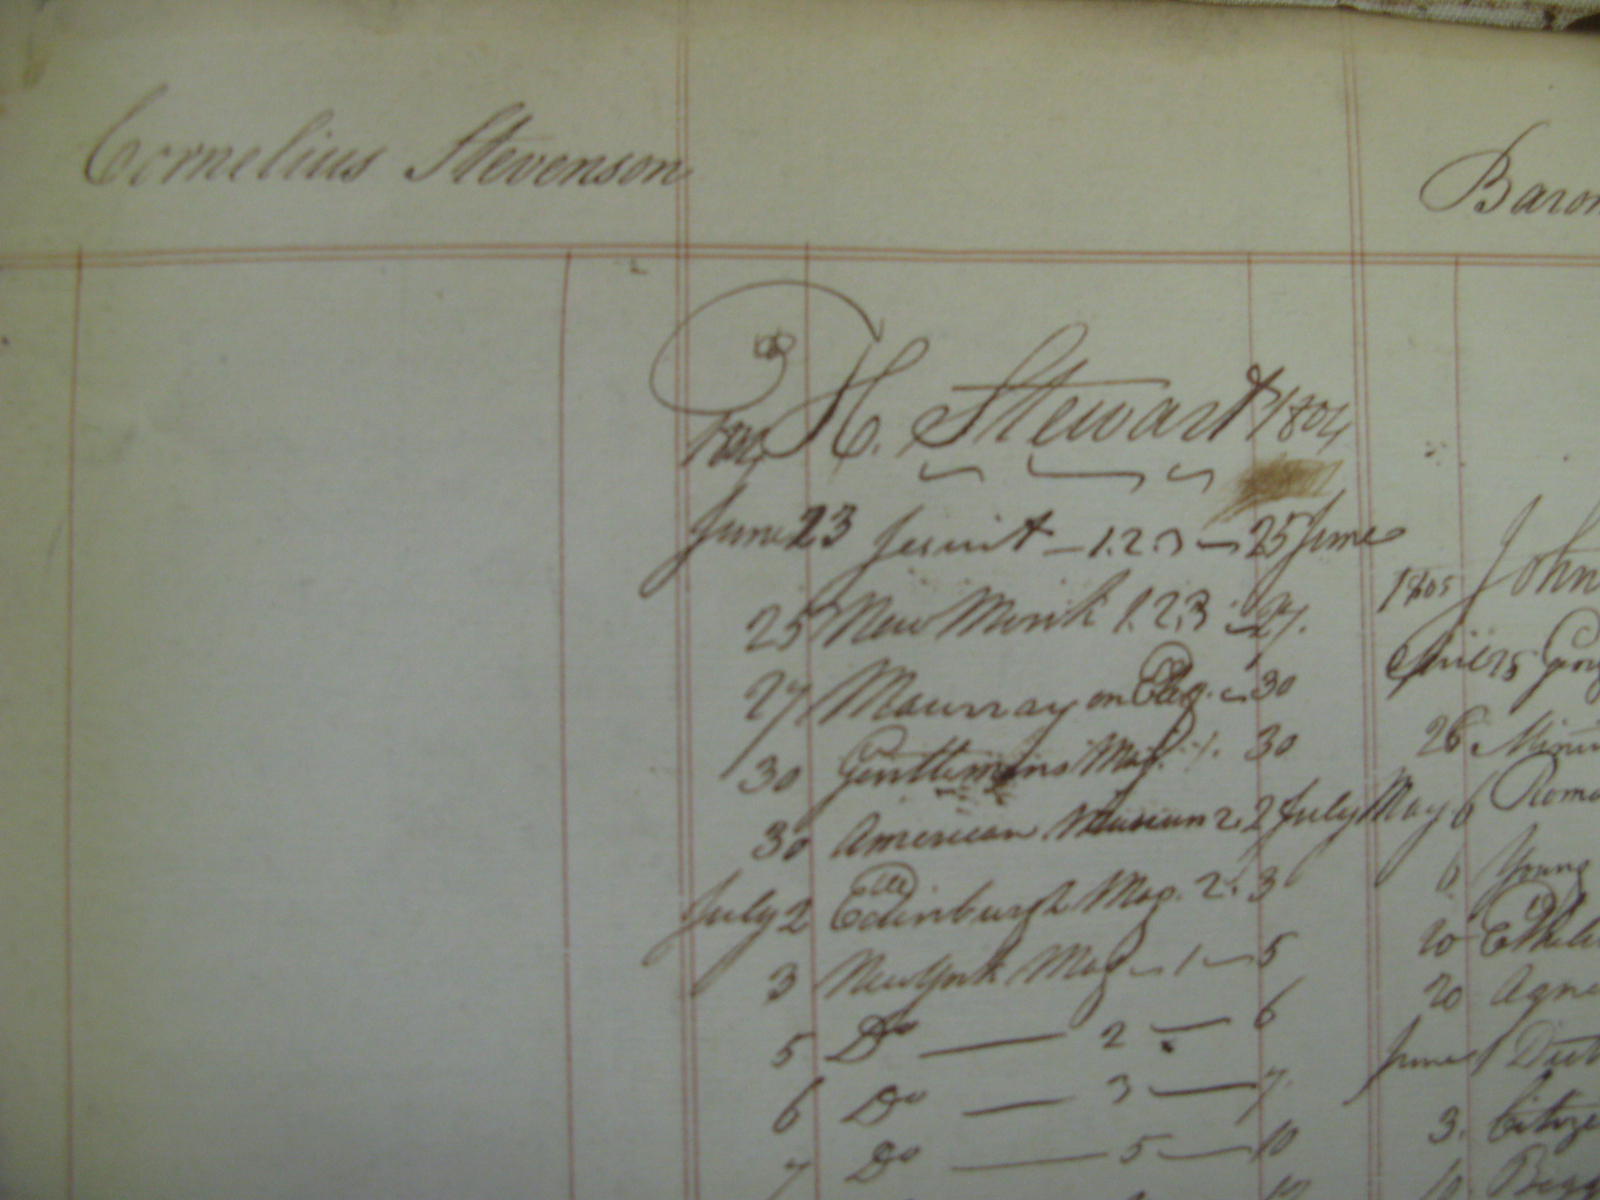 Cornelius Stevenson
H. Stewart 1804
June 23 Jesuit — 1.2.3 — 25 June
25 New Monk 1.2.3 — 27.
27 Mourray on — 30
30 Gentlemins Mag. 1. 30
30 American Museum 2. 2 July
July 2 Edinburgh Mag. 2. 3
3 New York Mag — 1 — 5
5 Do — 2 — 6
6 Do — 3 — 7.
7 Do — 5 — 10
Baron
1805 John
April 25
26
May 6 Roma
6 Young
20
20 Agne
June 1
3. Citize
10